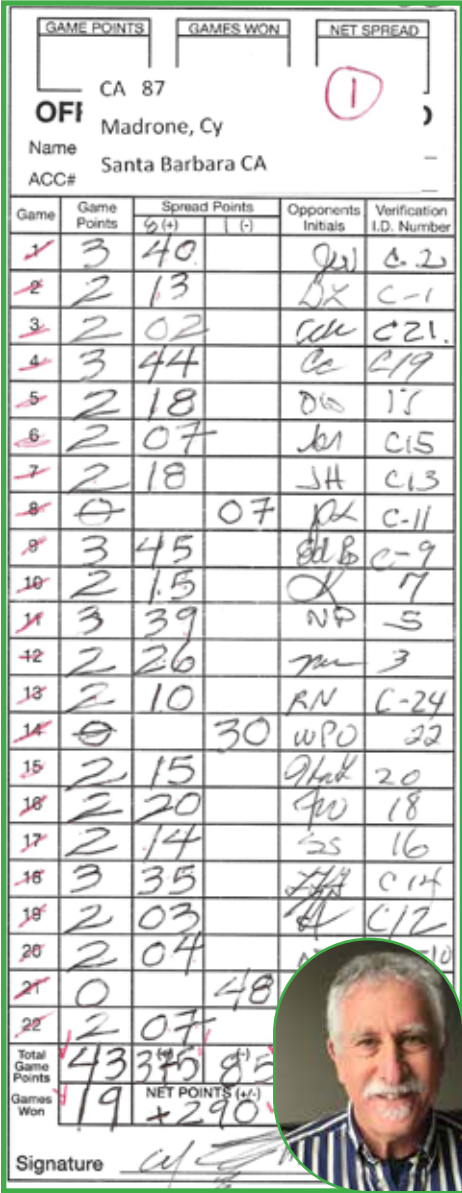 GAME POINTS GAMES WON NET SPREAD
CA 87
1
Madrone, Cy
Name
Santa Barbara CA
ACC#
Game Game Points Spread Points (+) (-) Opponents Initials Verification I.D. Number
1 3 40 C-2
2 2 13 C-1
3 2 02 C21.
4 3 44 Cc C19
5 2 18
6 2 07 C15
7 2 18 JH C13
8 0 07 C-11
9 3 45 Ed B C-9
10 2 15 7
11 3 39 NP 5
12 2 26 3
13 2 10 RN C-24
14 0 30 WPO 22
15 2 15 20
16 2 20 18
17 2 14 SS 16
18 3 35 C14
19 2 03 C12
20 2 04 10
21 0 48
22 2 07
Total Game Points 43 (+) 375 (-) 85
Games Won 19 NET POINTS (+/-) +290
Signature